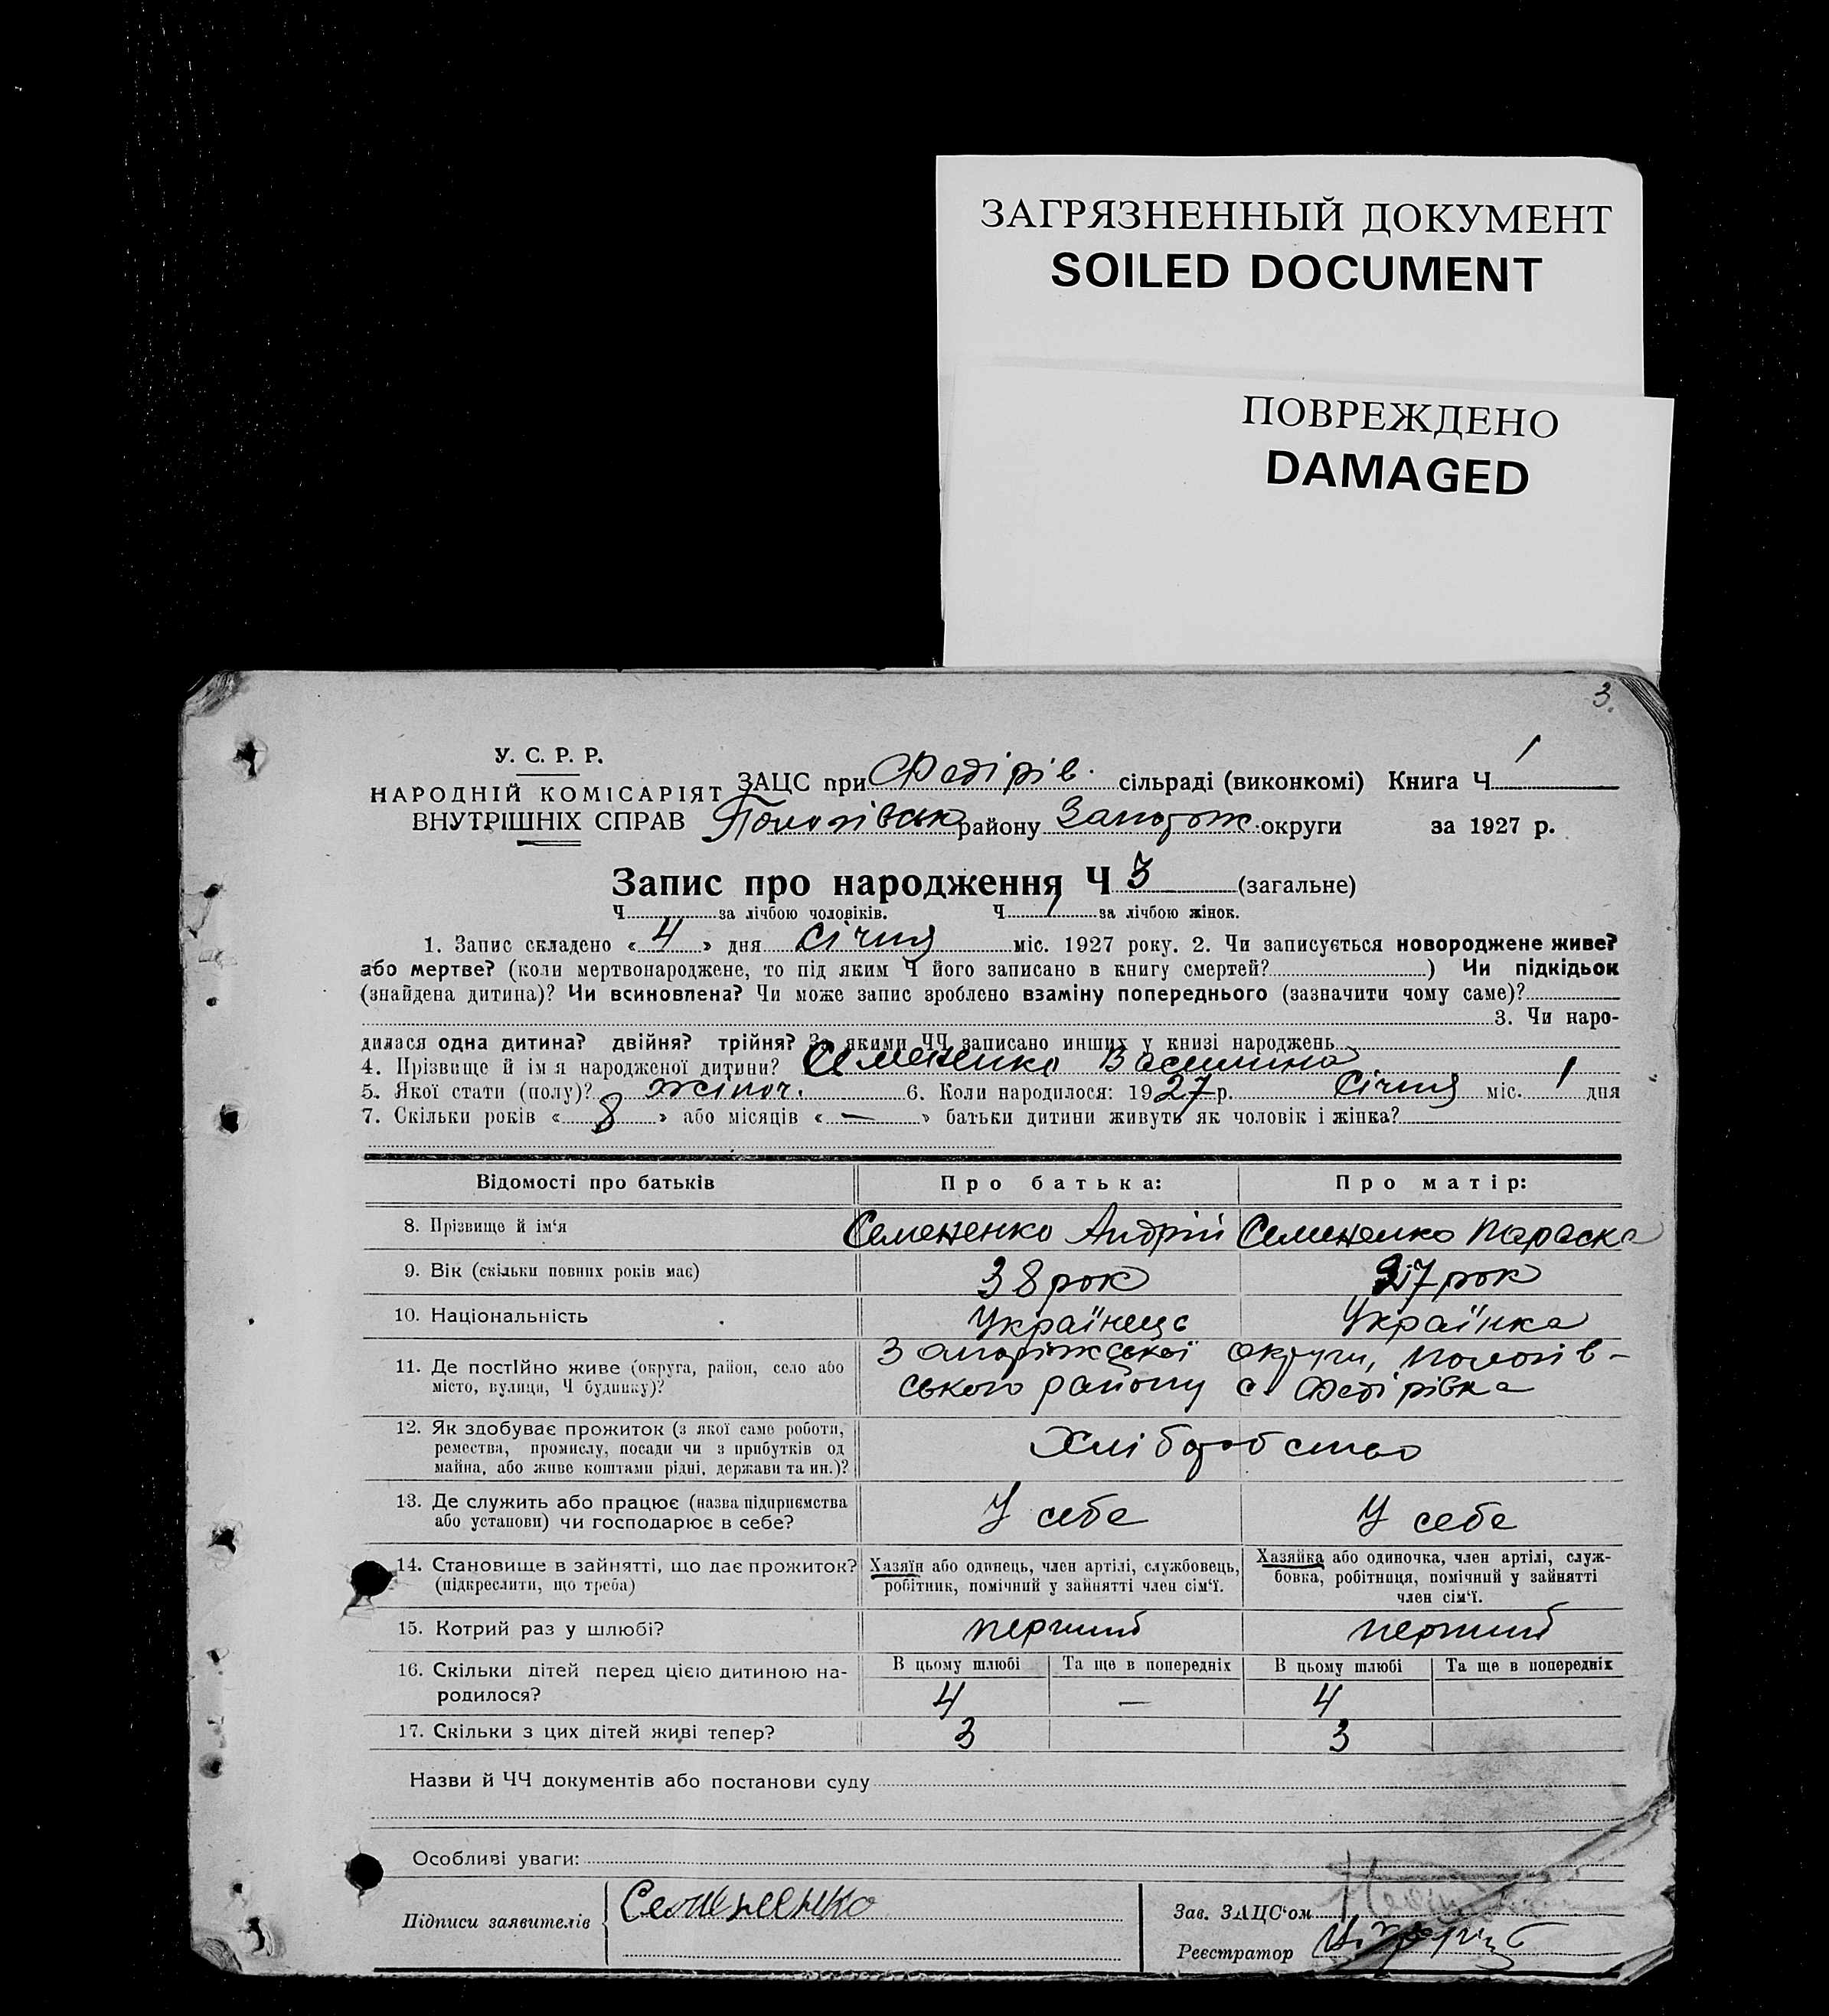 ЗАГРЯЗНЕННЫЙ ДОКУМЕНТ
SOILED DOCUMENT
ПОВРЕЖДЕНО
DAMAGED
3.
У. С. Р. Р.
НАРОДНІЙ КОМІСАРІЯТ
ВНУТРІШНІХ СПРАВ
ЗАЦС при Федірів. сільраді (виконкомі) Книга Ч 1
Пологівськ району Запорож. округи за 1927 р.
Запис про народження Ч 3 (загальне)
Ч за лічбою чоловіків. Ч 1 за лічбою жінок.
1. Запис складено « 4 » дня Січня міс. 1927 року. 2. Чи записується новороджене живе?
або мертве? (коли мертвонароджене, то під яким Ч його записано в книгу смертей? ) Чи підкідьок
(знайдена дитина)? Чи всиновлена? Чи може запис зроблено взаміну попереднього (зазначити чому саме)?
3. Чи наро-
дилася одна дитина? двійня? трійня? За якими ЧЧ записано инших у книзі народжень
4. Прізвище й ім я народженої дитини? Семененко Василина
5. Якої стати (полу)? жіноч. 6. Коли народилося: 1927 р. Січня міс. 1 дня
7. Скільки років « 8 » або місяців « — » батьки дитини живуть як чоловік і жінка?
Відомості про батьків Про батька: Про матір:
8. Прізвище й ім'я Семененко Андрій Семененко Параска
9. Вік (скільки повних років має) 38 рок 27 рок
10. Національність Українець Українка
11. Де постійно живе (округа, район, село або
місто, вулиця, Ч будинку)?
Запоріжської округи, Пологів-
ського району с. Федірівка
12. Як здобуває прожиток (з якої саме роботи,
ремества, промислу, посади чи з прибутків од
майна, або живе коштами рідні, держави та ин.)?
Хліборобство
13. Де служить або працює (назва підприємства
або установи) чи господарює в себе?
У себе У себе
14. Становище в зайнятті, що дає прожиток?
(підкреслити, що треба)
Хазяїн або одинець, член артілі, службовець,
робітник, помічний у зайнятті член сім'ї.
Хазяйка або одиночка, член артілі, служ-
бовка, робітниця, помічний у зайнятті
член сім'ї.
15. Котрий раз у шлюбі? перший перший
16. Скільки дітей перед цією дитиною на-
родилося?
В цьому шлюбі Та ще в попередніх В цьому шлюбі Та ще в попередніх
4 — 4
17. Скільки з цих дітей живі тепер? 3 3
Назви й ЧЧ документів або постанови суду
Особливі уваги:
Підписи заявителів Семененко
Зав. ЗАЦС'ом
Реєстратор